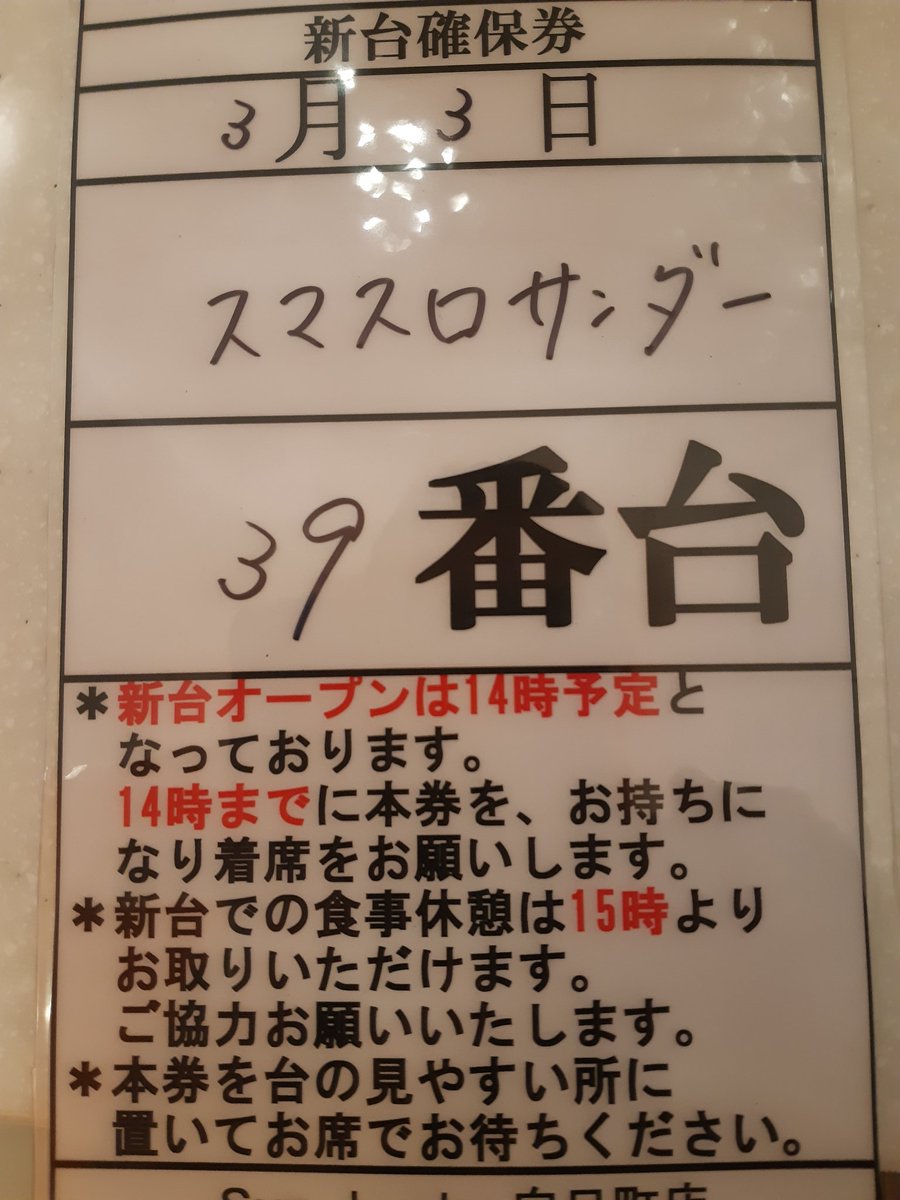 新台確保券
3月3日
スマスロサンダー
39番台
＊新台オープンは14時予定と
なっております。
14時までに本券を、お持ちに
なり着席をお願いします。
＊新台での食事休憩は15時より
お取りいただけます。
ご協力お願いいたします。
＊本券を台の見やすい所に
置いてお席でお待ちください。